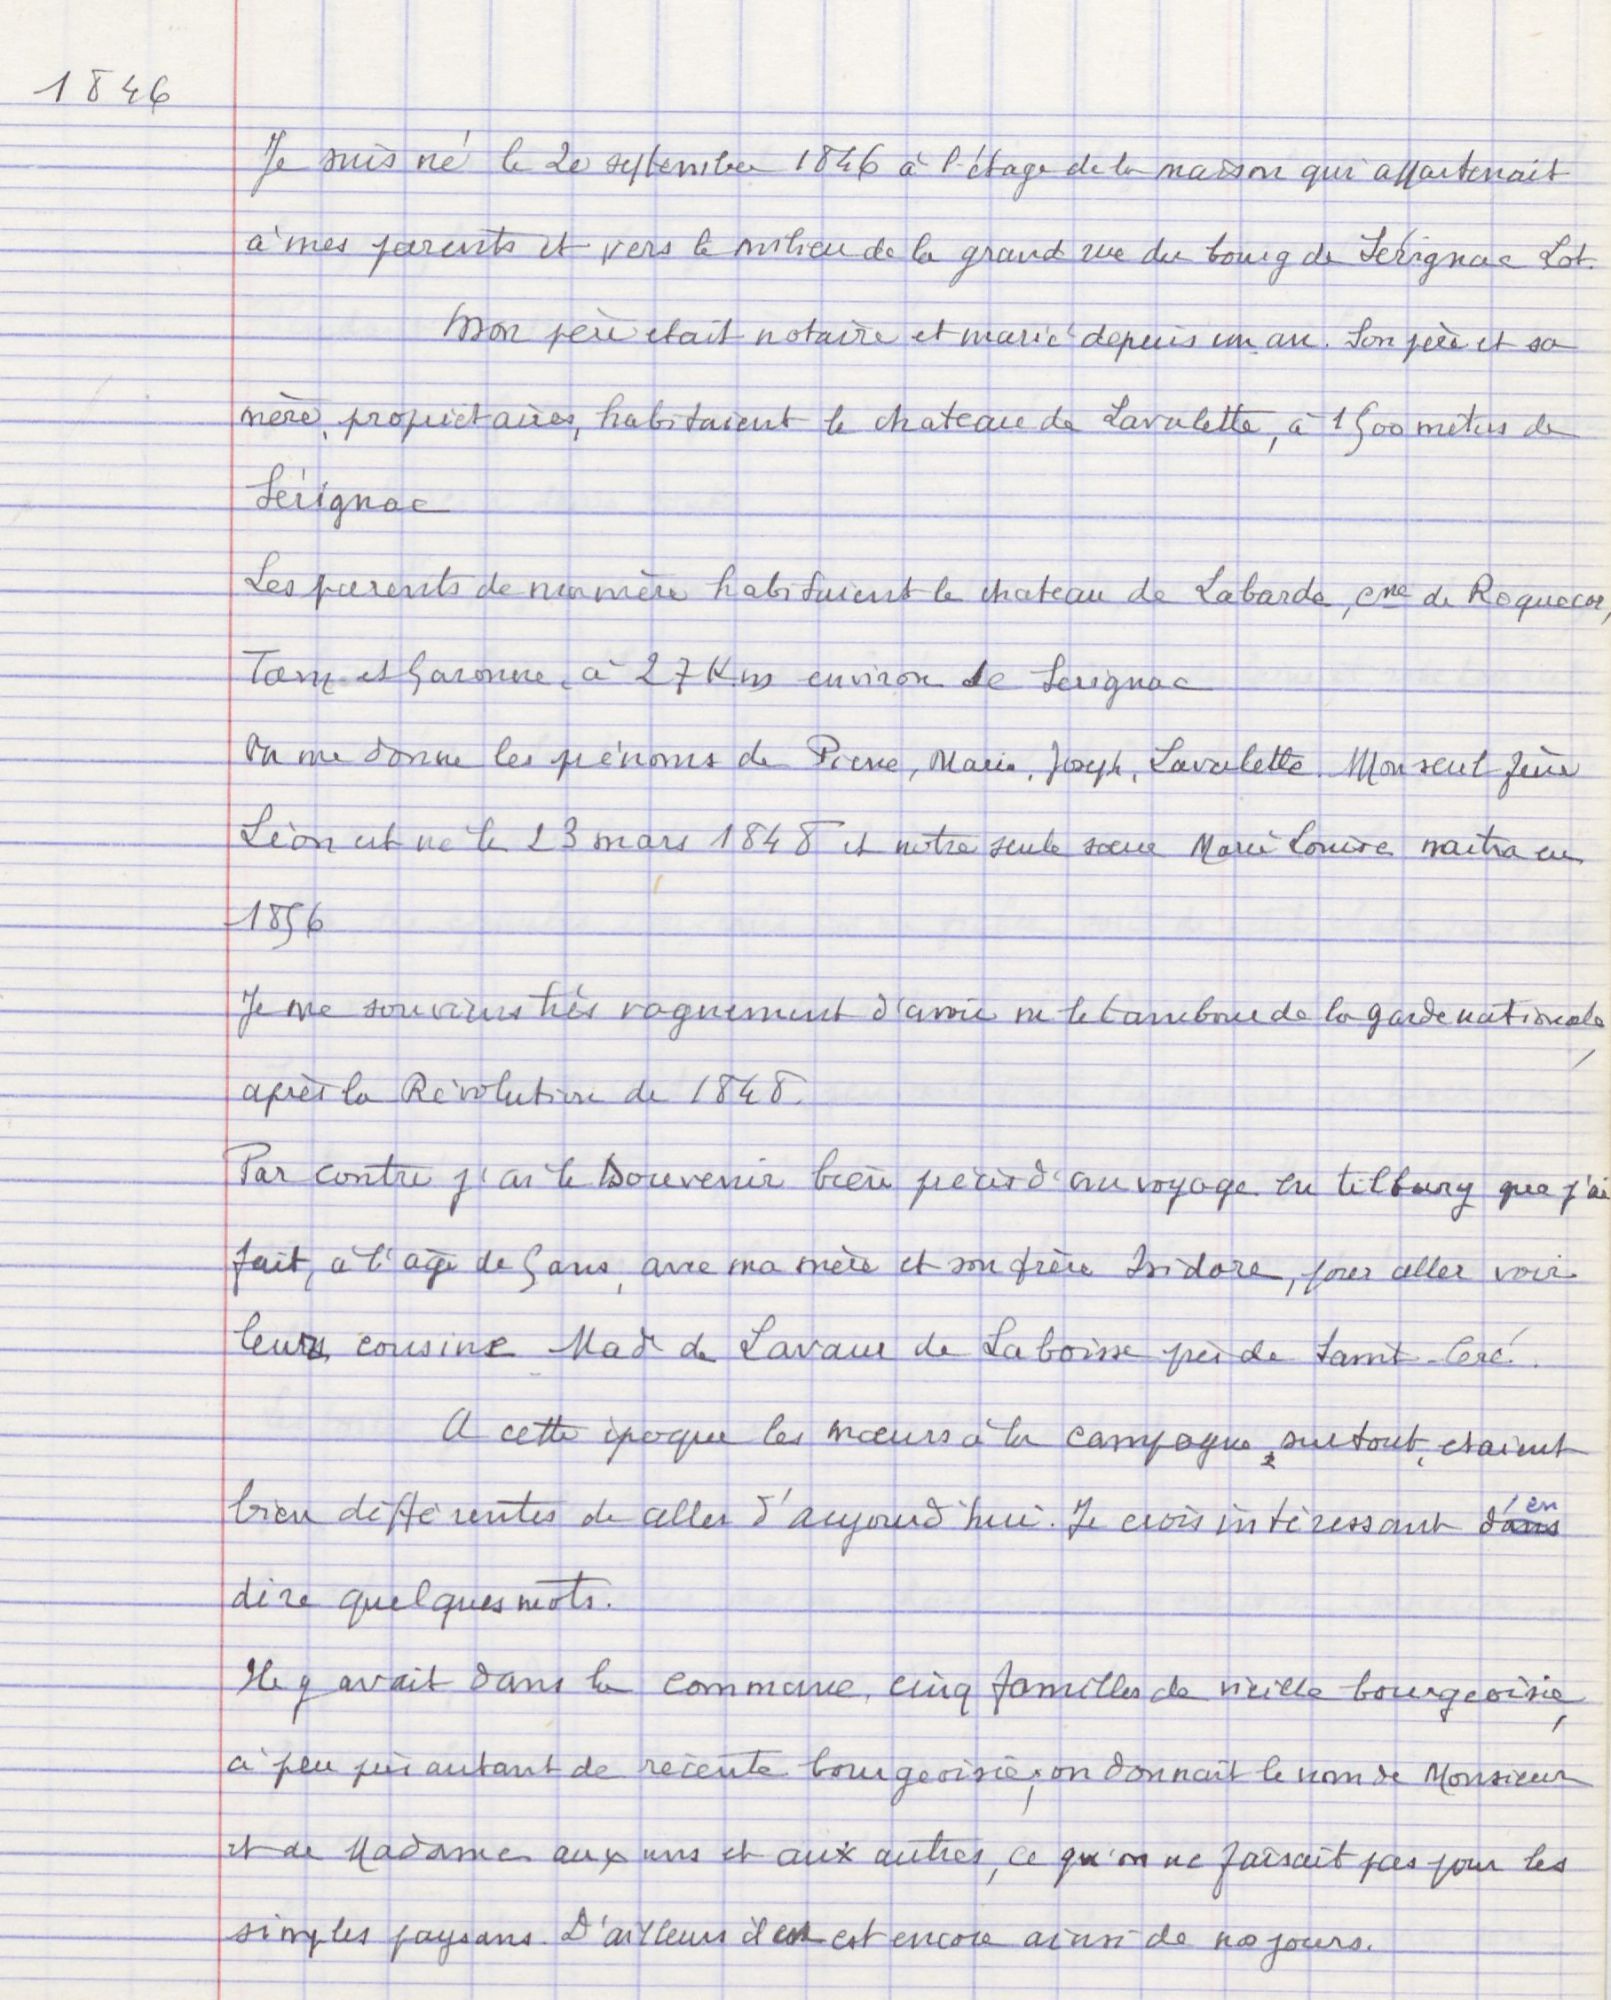 1846
Je suis né le 20 septembre 1846 à l'étage de la maison qui appartenait
à mes parents et vers le milieu de la grand rue du bourg de Sérignac Lot.
Mon père était notaire et marié depuis un an. Son père et sa
mère, propriétaires, habitaient le chateau de Lavalette, à 1500 mètres de
Sérignac
Les parents de ma mère habitaient le chateau de Labarde, cne de Roquecor,
Tarn et Garonne, à 27 Kms environ de Serignac
On me donne les prénoms de Pierre, Marie, Joseph, Lavalette. Mon seul frère
Léon est né le 23 mars 1848 et notre seule soeur Marie Louise naitra en
1856
Je me souviens très vaguement d'avoir vu le tambour de la garde nationale,
après la Révolution de 1848.
Par contre j'ai le souvenir bien précis d'un voyage en tilbury que j'ai
fait, à l'age de 5 ans, avec ma mère et son frère Isidore, pour aller voir
leur cousine Mad de Lavaur de Laboisse près de Saint-Céré.
A cette époque les moeurs à la campagne, surtout, étaient
bien différentes de celles d'aujourd'hui. Je crois intéressant d'en
dire quelques mots.
Il y avait dans la commune, cinq familles de vieille bourgeoisie,
à peu près autant de récente bourgeoisie; on donnait le nom de Monsieur
et de Madame aux uns et aux autres, ce qu'on ne faisait pas pour les
simples paysans. D'ailleurs il en est encore ainsi de nos jours.